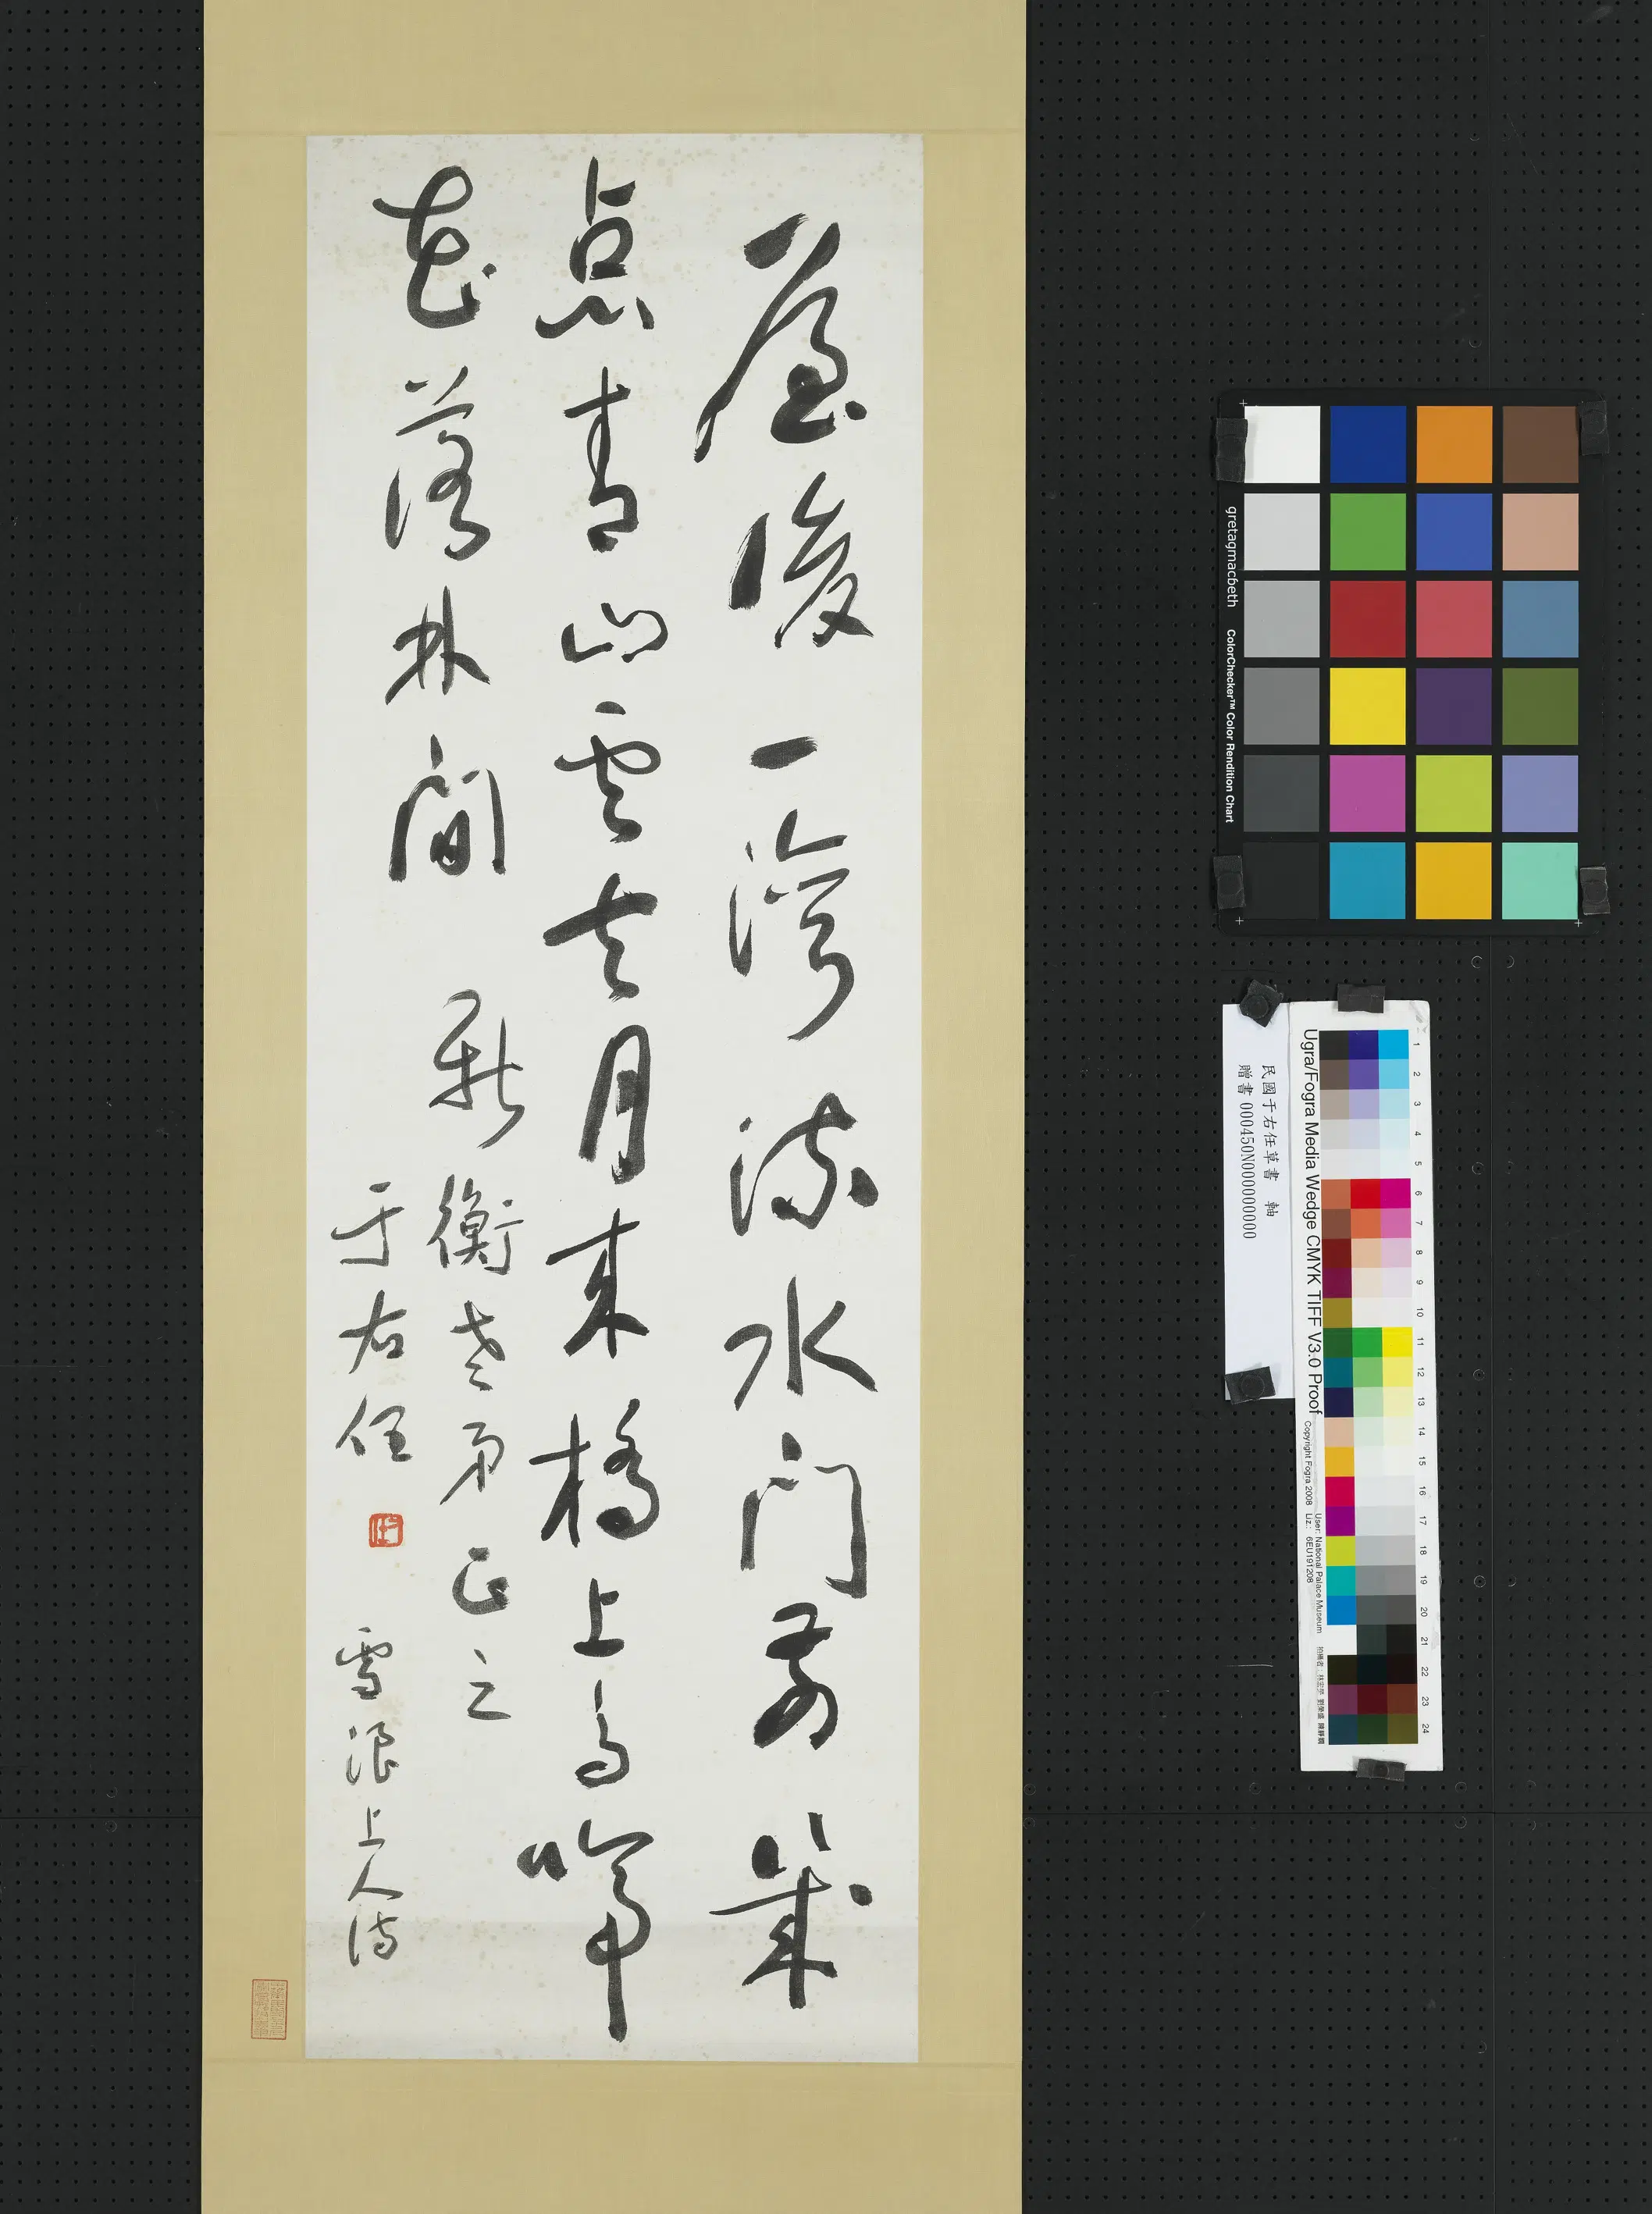 屋後一灣流水門前幾
点青山雲去月來橋上鳥啼
花落林間
新衡老弟正之
于右任
右任
雪浪上人詩
gretagmacbeth
ColorChecker™ Color Rendition Chart
民國于右任草書 軸
贈書 000450N000000000
Ugra/Fogra Media Wedge CMYK TIFF V3.0 Proof
Copyright Fogra 2008 Liz.: 6EU191208
User: National Palace Museum
1
2
3
4
5
6
7
8
9
10
11
12
13
14
15
16
17
18
19
20
21
22
23
24